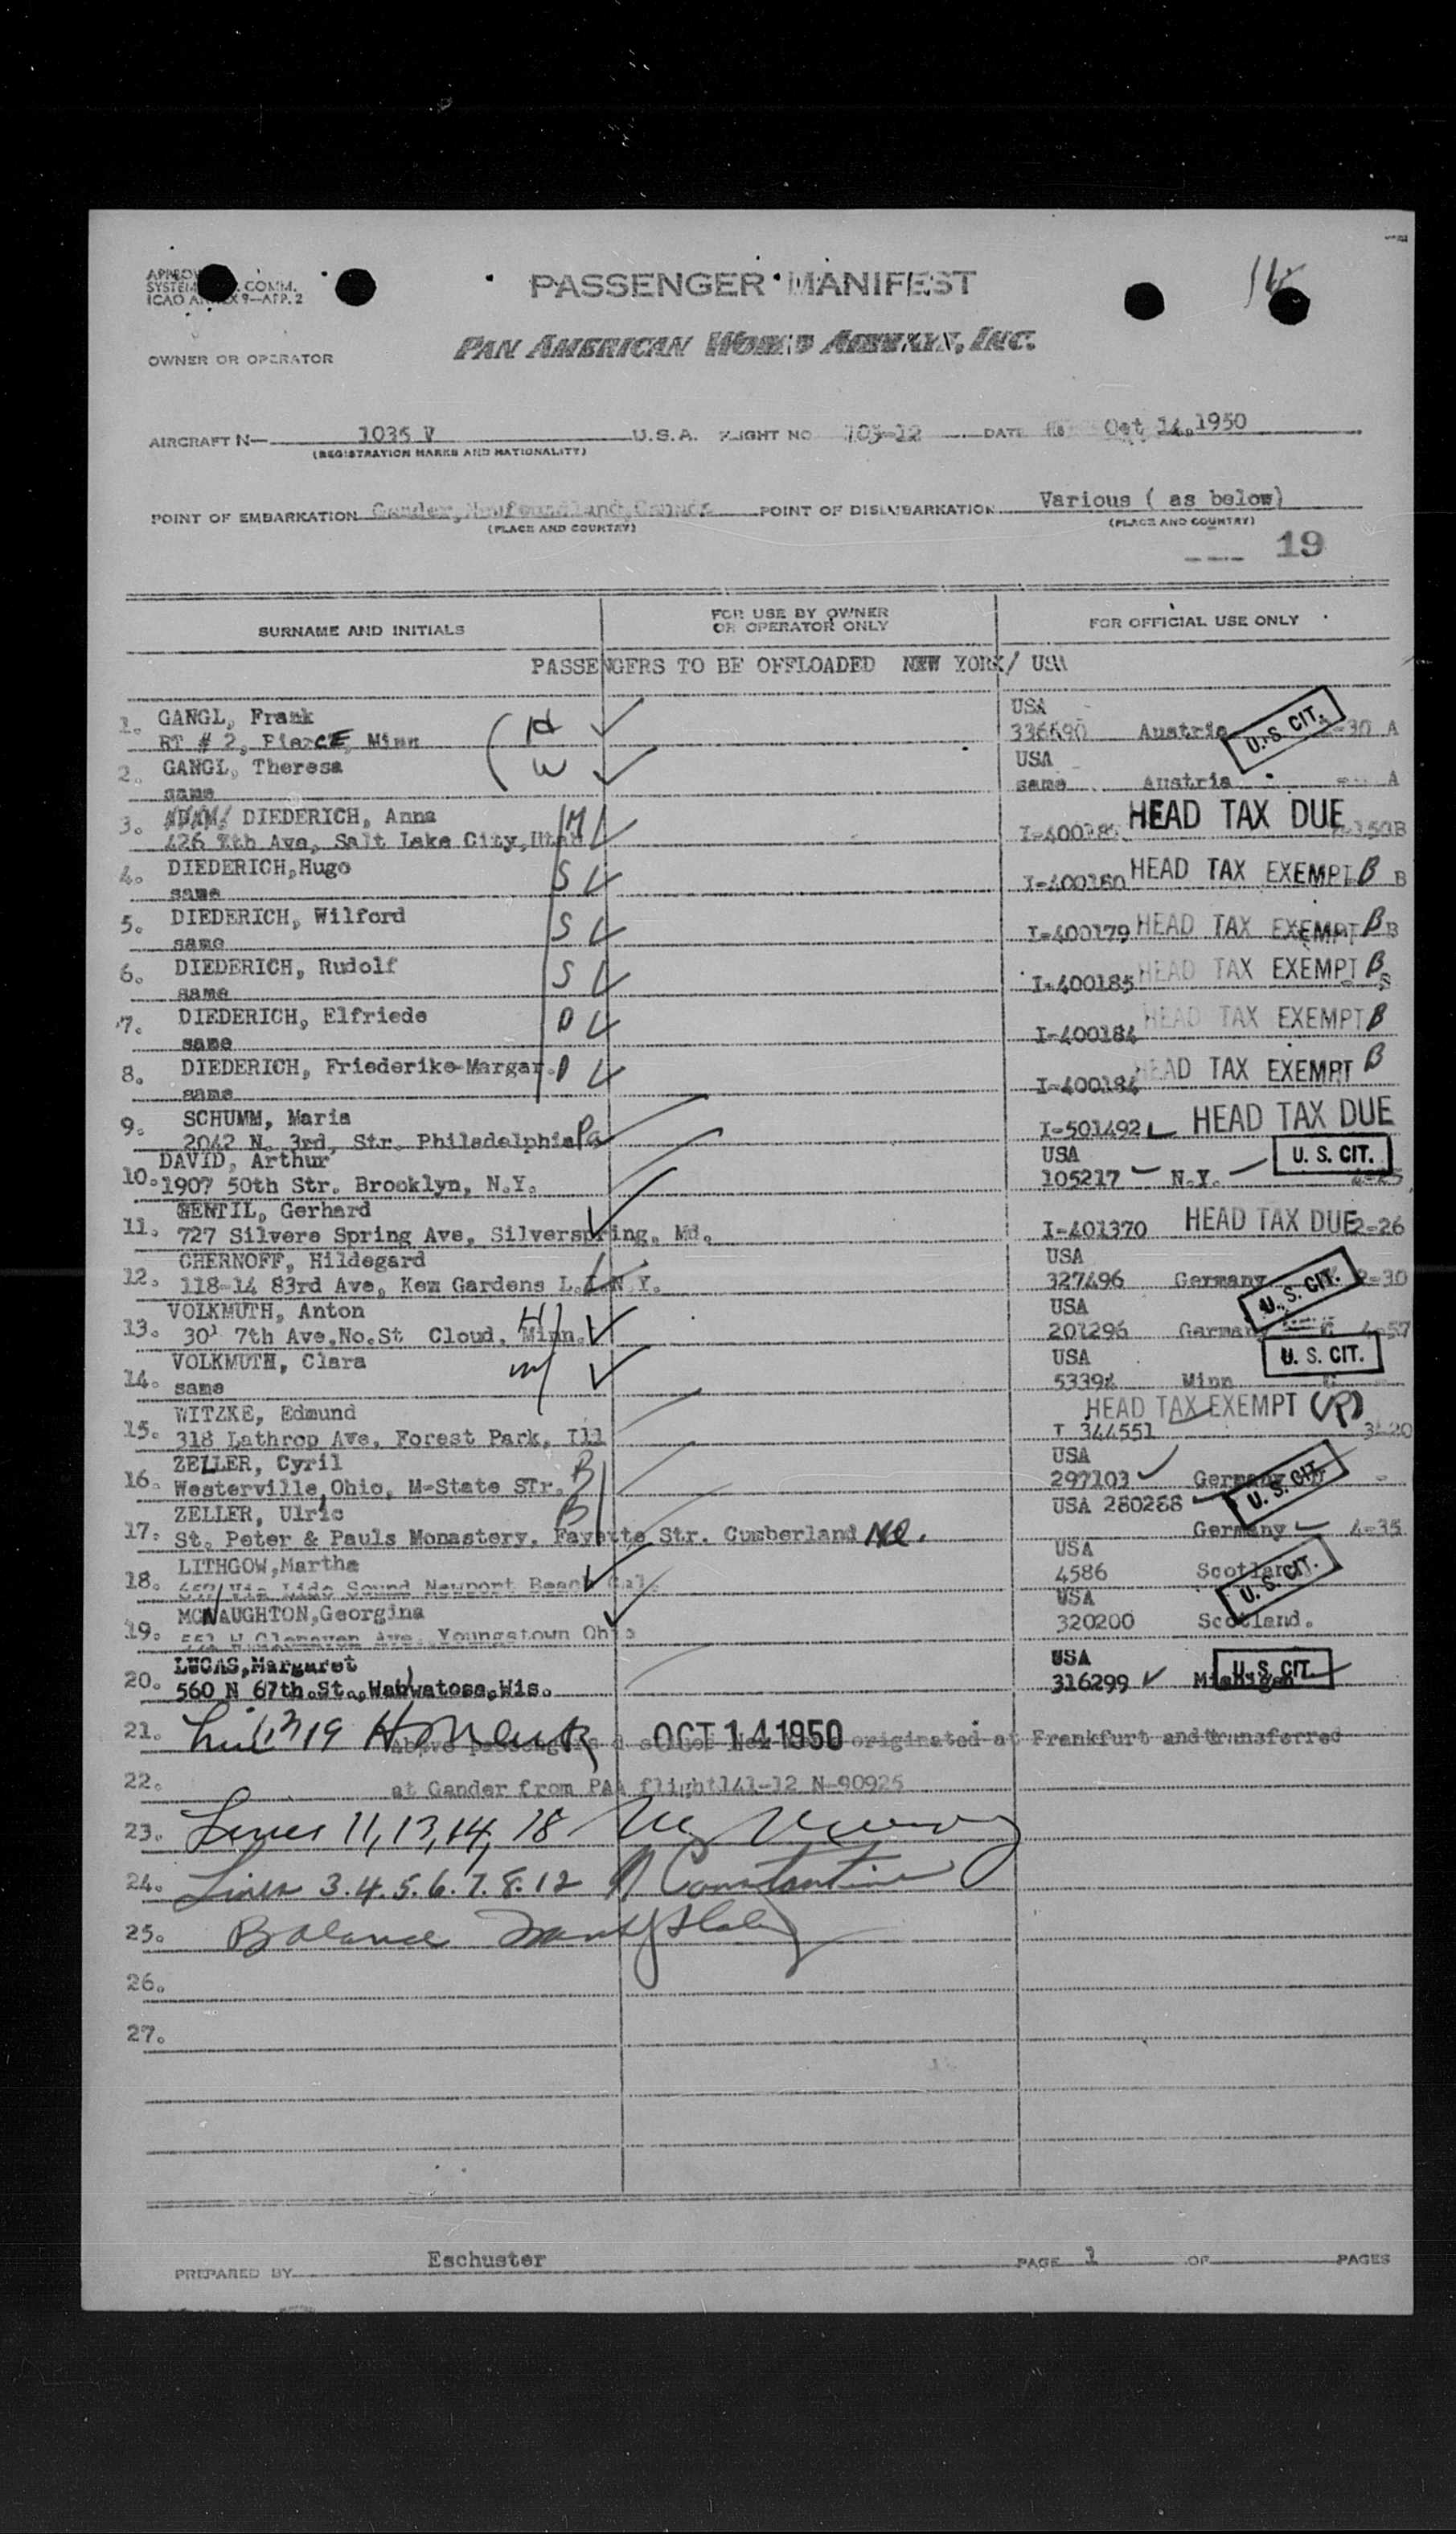 PASSENGER MANIFEST
SYSTEM COMM.
ICAO ANNEX 9—APP. 2
OWNER OR OPERATOR
PAN AMERICAN WORLD AIRWAYS, INC.
AIRCRAFT N— 1035 V U.S.A. FLIGHT NO 103-12 DATE Oct 14, 1950
(REGISTRATION MARKS AND NATIONALITY)
POINT OF EMBARKATION Gander, Newfoundland, Canada POINT OF DISEMBARKATION Various ( as below)
(PLACE AND COUNTRY) (PLACE AND COUNTRY)
19
SURNAME AND INITIALS FOR USE BY OWNER OR OPERATOR ONLY FOR OFFICIAL USE ONLY
PASSENGERS TO BE OFFLOADED NEW YORK/ USA
1. GANGL, Frank H USA
RT # 2, PierCE, Minn 336690 Austria U. S. CIT. -30 A
2. GANGL, Theresa W USA
same same Austria A
3. DIEDERICH, Anna M HEAD TAX DUE
426 7th Ave, Salt Lake City, Utah
4. DIEDERICH,Hugo S HEAD TAX EXEMPT B B
same I-400180
5. DIEDERICH, Wilford S HEAD TAX EXEMPT B B
same I-400179
6. DIEDERICH, Rudolf S HEAD TAX EXEMPT B
same I-400185
7. DIEDERICH, Elfriede D HEAD TAX EXEMPT B
same I-400184
8. DIEDERICH, Friederike-Margar. D HEAD TAX EXEMPT B
same I-400184
9. SCHUMM, Maria HEAD TAX DUE
2042 N. 3rd, Str. Philadelphia Pa I-501492
10. DAVID, Arthur USA U. S. CIT.
1907 50th Str. Brooklyn, N.Y. 105217 N.Y.
11. GENTIL, Gerhard HEAD TAX DUE
727 Silvere Spring Ave, Silverspring, Md. I-401370 2-26
12. CHERNOFF, Hildegard USA
118-14 83rd Ave, Kew Gardens L.I.N.Y. 327496 Germany U. S. CIT. -30
13. VOLKMUTH, Anton H USA
301 7th Ave.No.St Cloud, Minn. 201296 Germany
14. VOLKMUTH, Clara W USA U. S. CIT.
same 53394 Minn
15. WITZKE, Edmund HEAD TAX EXEMPT (R)
318 Lathrop Ave, Forest Park, Ill I 344551
16. ZELLER, Cyril B USA
Westerville,Ohio, M-State STr. 297103 Germany U. S. CIT.
17. ZELLER, Ulric B USA 280288
St. Peter & Pauls Monastery, Fayette Str. Cumberland Md. Germany 4-35
18. LITHGOW,Martha USA
657 Via Lido Sound Newport Beach Cal. 4586 Scotland U. S. CIT.
19. MCNAUGHTON,Georgina USA
Glenaven Ave. Youngstown Ohio 320200 Scotland.
20. LUCAS,Margaret USA U. S. CIT.
560 N 67th.St.,Wauwatosa,Wis. 316299 Michigan
21. 19 OCT 14 1950 originated at Frankfurt and transferred
22. at Gander from PAA flight141-12 N-90925
23. Lines 11, 13, 14, 18
24. Lines 3.4.5.6.7.8.12 Constantine
25. Balance
26.
27.
PREPARED BY Eschuster PAGE 1 OF PAGES